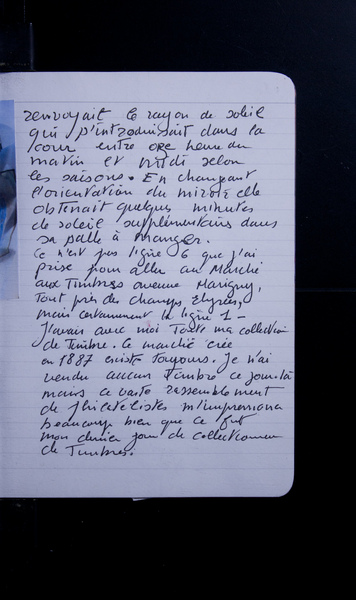 renvoyait le rayon de soleil
qui s'introduisait dans la
cour entre onze heure du
matin et midi selon
les saisons. En changeant
l'orientation du miroir elle
obtenait quelques minutes
de soleil supplémentaires dans
sa salle à manger.
Ce n'est pas ligne 6 que j'ai
prise pour aller au Marché
aux Timbres avenue Marigny,
Tout près des champs Elysées,
mais certainement la ligne 1 -
J'avais avec moi Toute ma collection
de Timbre. Ce marché crée
en 1887 existe Toujours. Je n'ai
vendu aucun Timbre ce jour-là
mais ce vaste rassemblement
de philatélistes m'impressionna
beaucoup bien que ce fut
mon dernier jour de collectionneur
de Timbres.